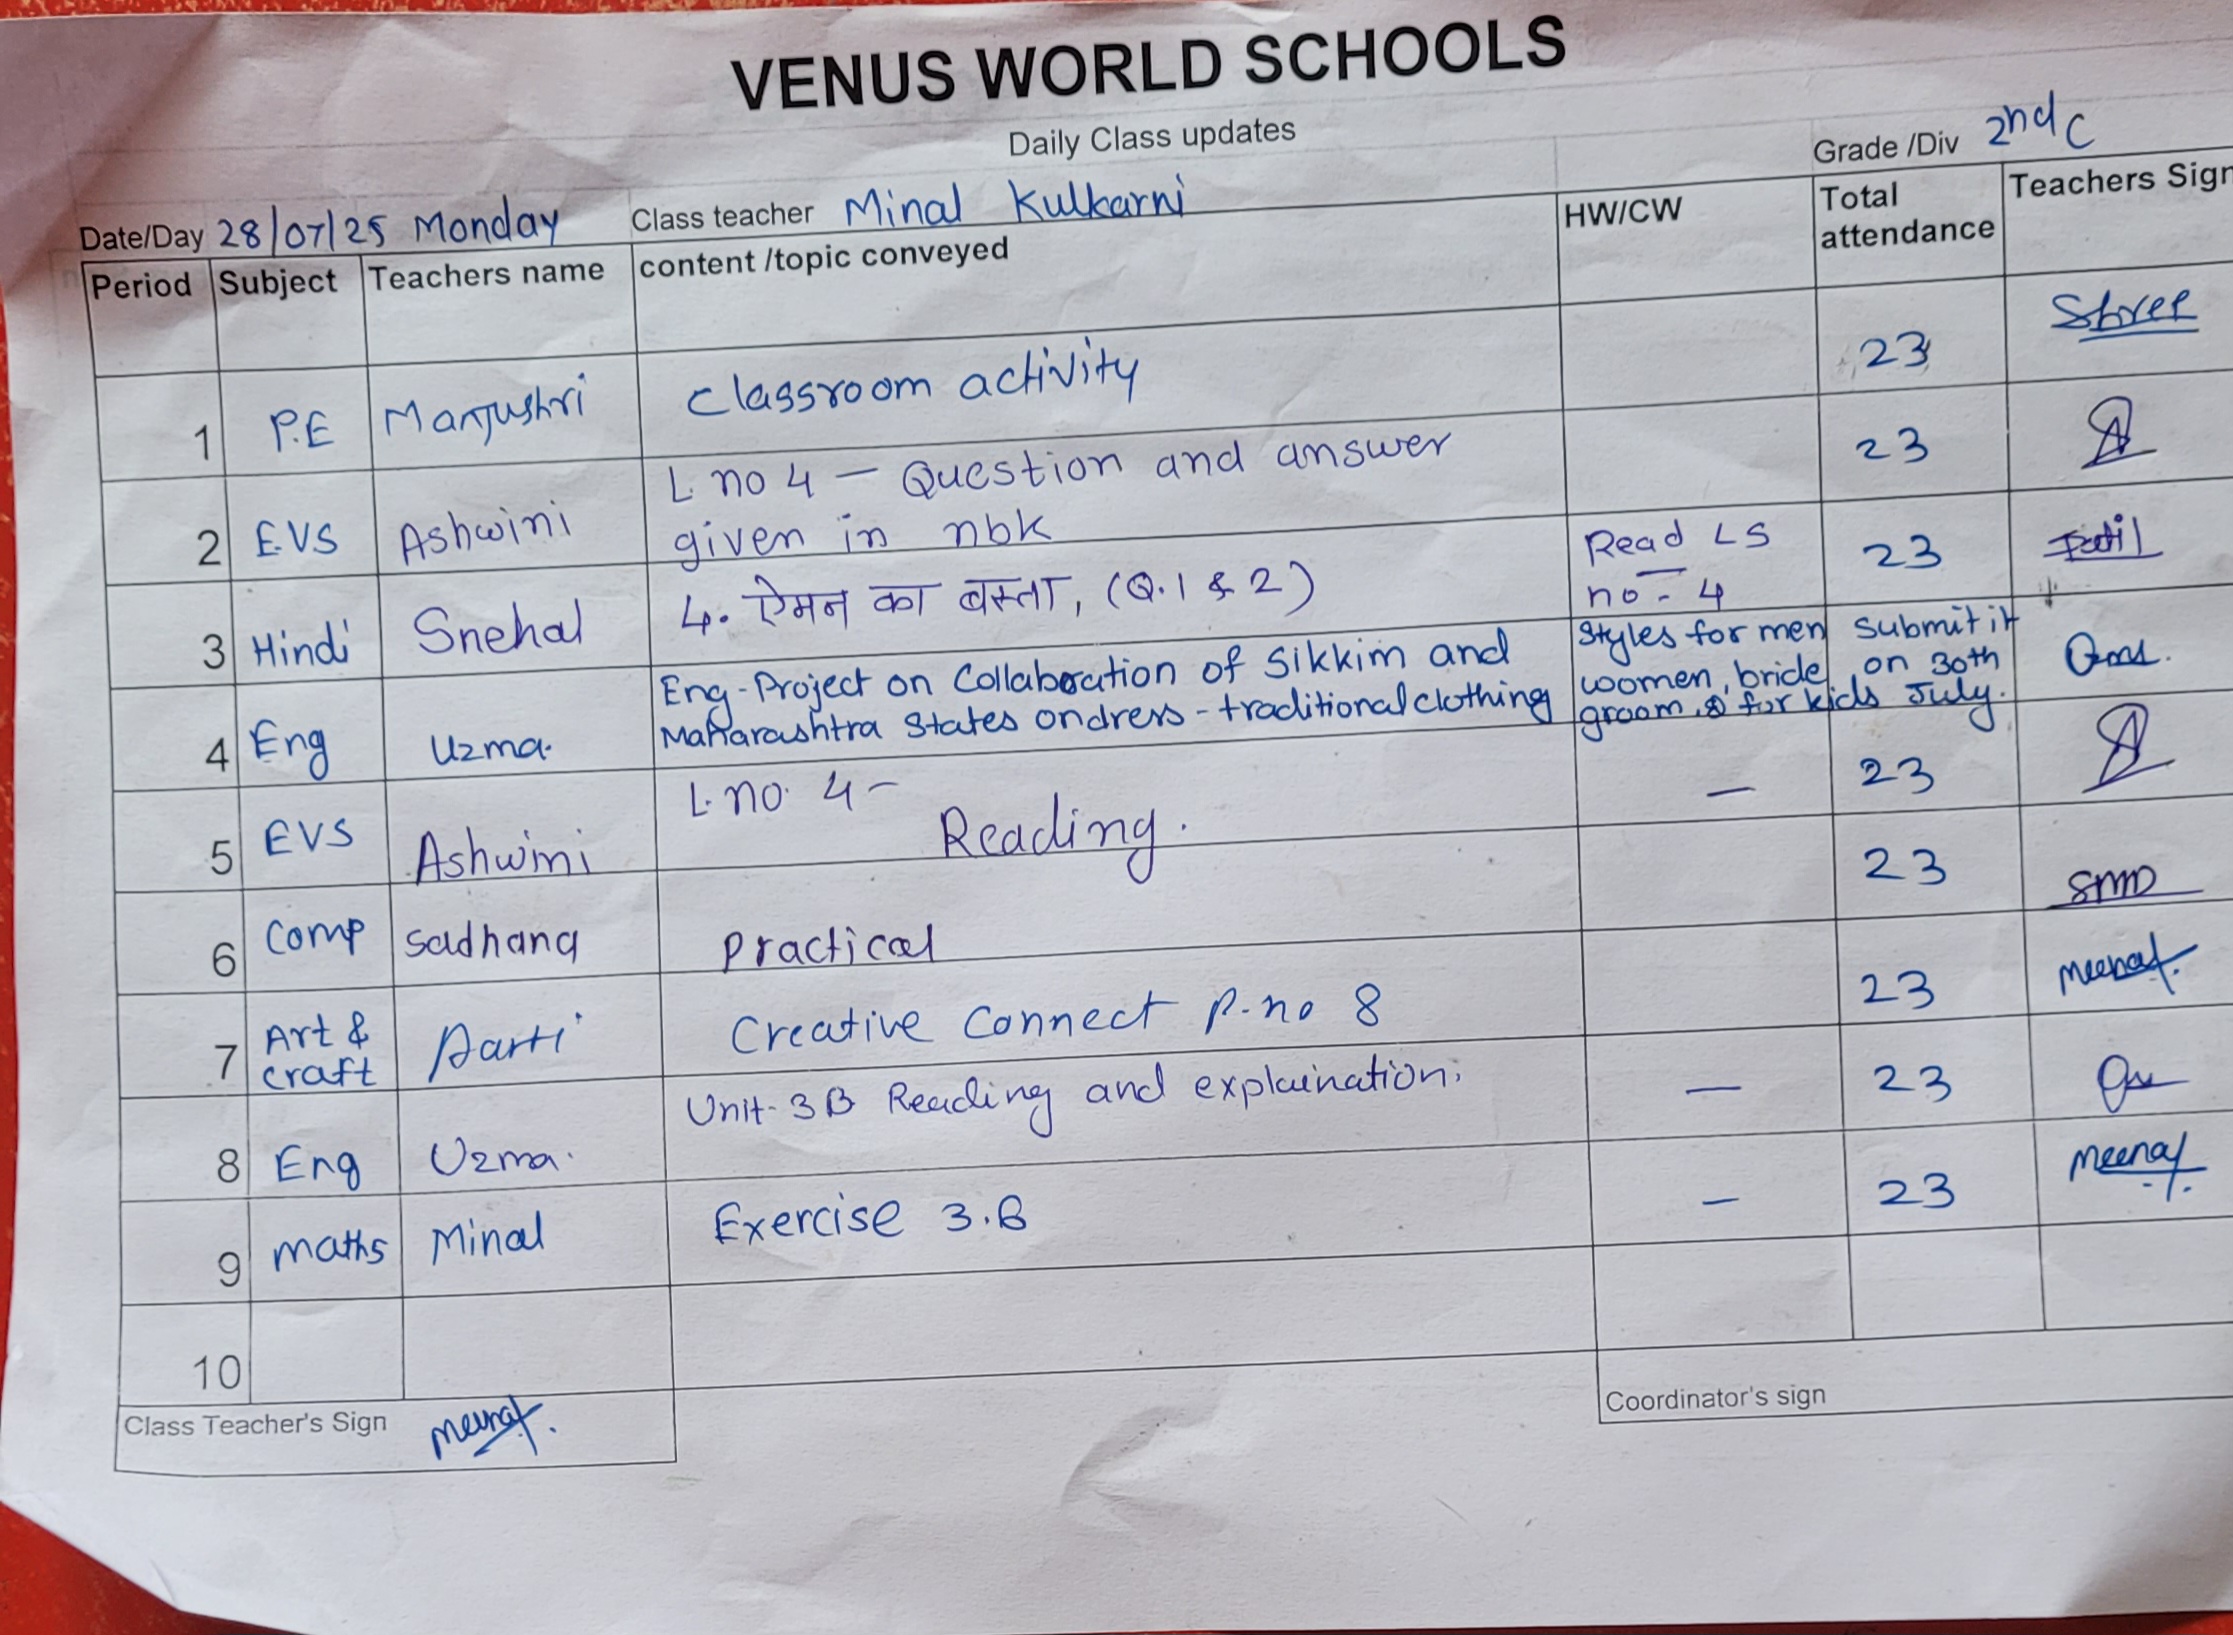 VENUS WORLD SCHOOLS
Daily Class updates
Grade /Div 2nd C
Date/Day 28/07/25 Monday Class teacher Minal Kulkarni
Period Subject Teachers name content /topic conveyed HW/CW Total attendance Teachers Sign
1 P.E Manjushri Classroom activity 23 Shree
2 E.VS Ashwini L. no 4 - Question and answer 23
given in nbk
3 Hindi Snehal 4. ऐमन का बस्ता, (Q.1 & 2) Read LS 23 Patil
no - 4
4 Eng Uzma. Eng-Project on Collaboration of Sikkim and Styles for men submit it
Maharashtra States on dress - traditional clothing women, bride on 30th
groom, & for kids July.
5 EVS Ashwini L. no. 4 - — 23
Reading.
6 Comp sadhana Practical 23 SMD
7 Art & craft Aarti Creative Connect P. no 8 23
8 Eng Uzma. Unit- 3B Reading and explaination. — 23
9 maths Minal Exercise 3.B - 23
10
Class Teacher's Sign
Coordinator's sign